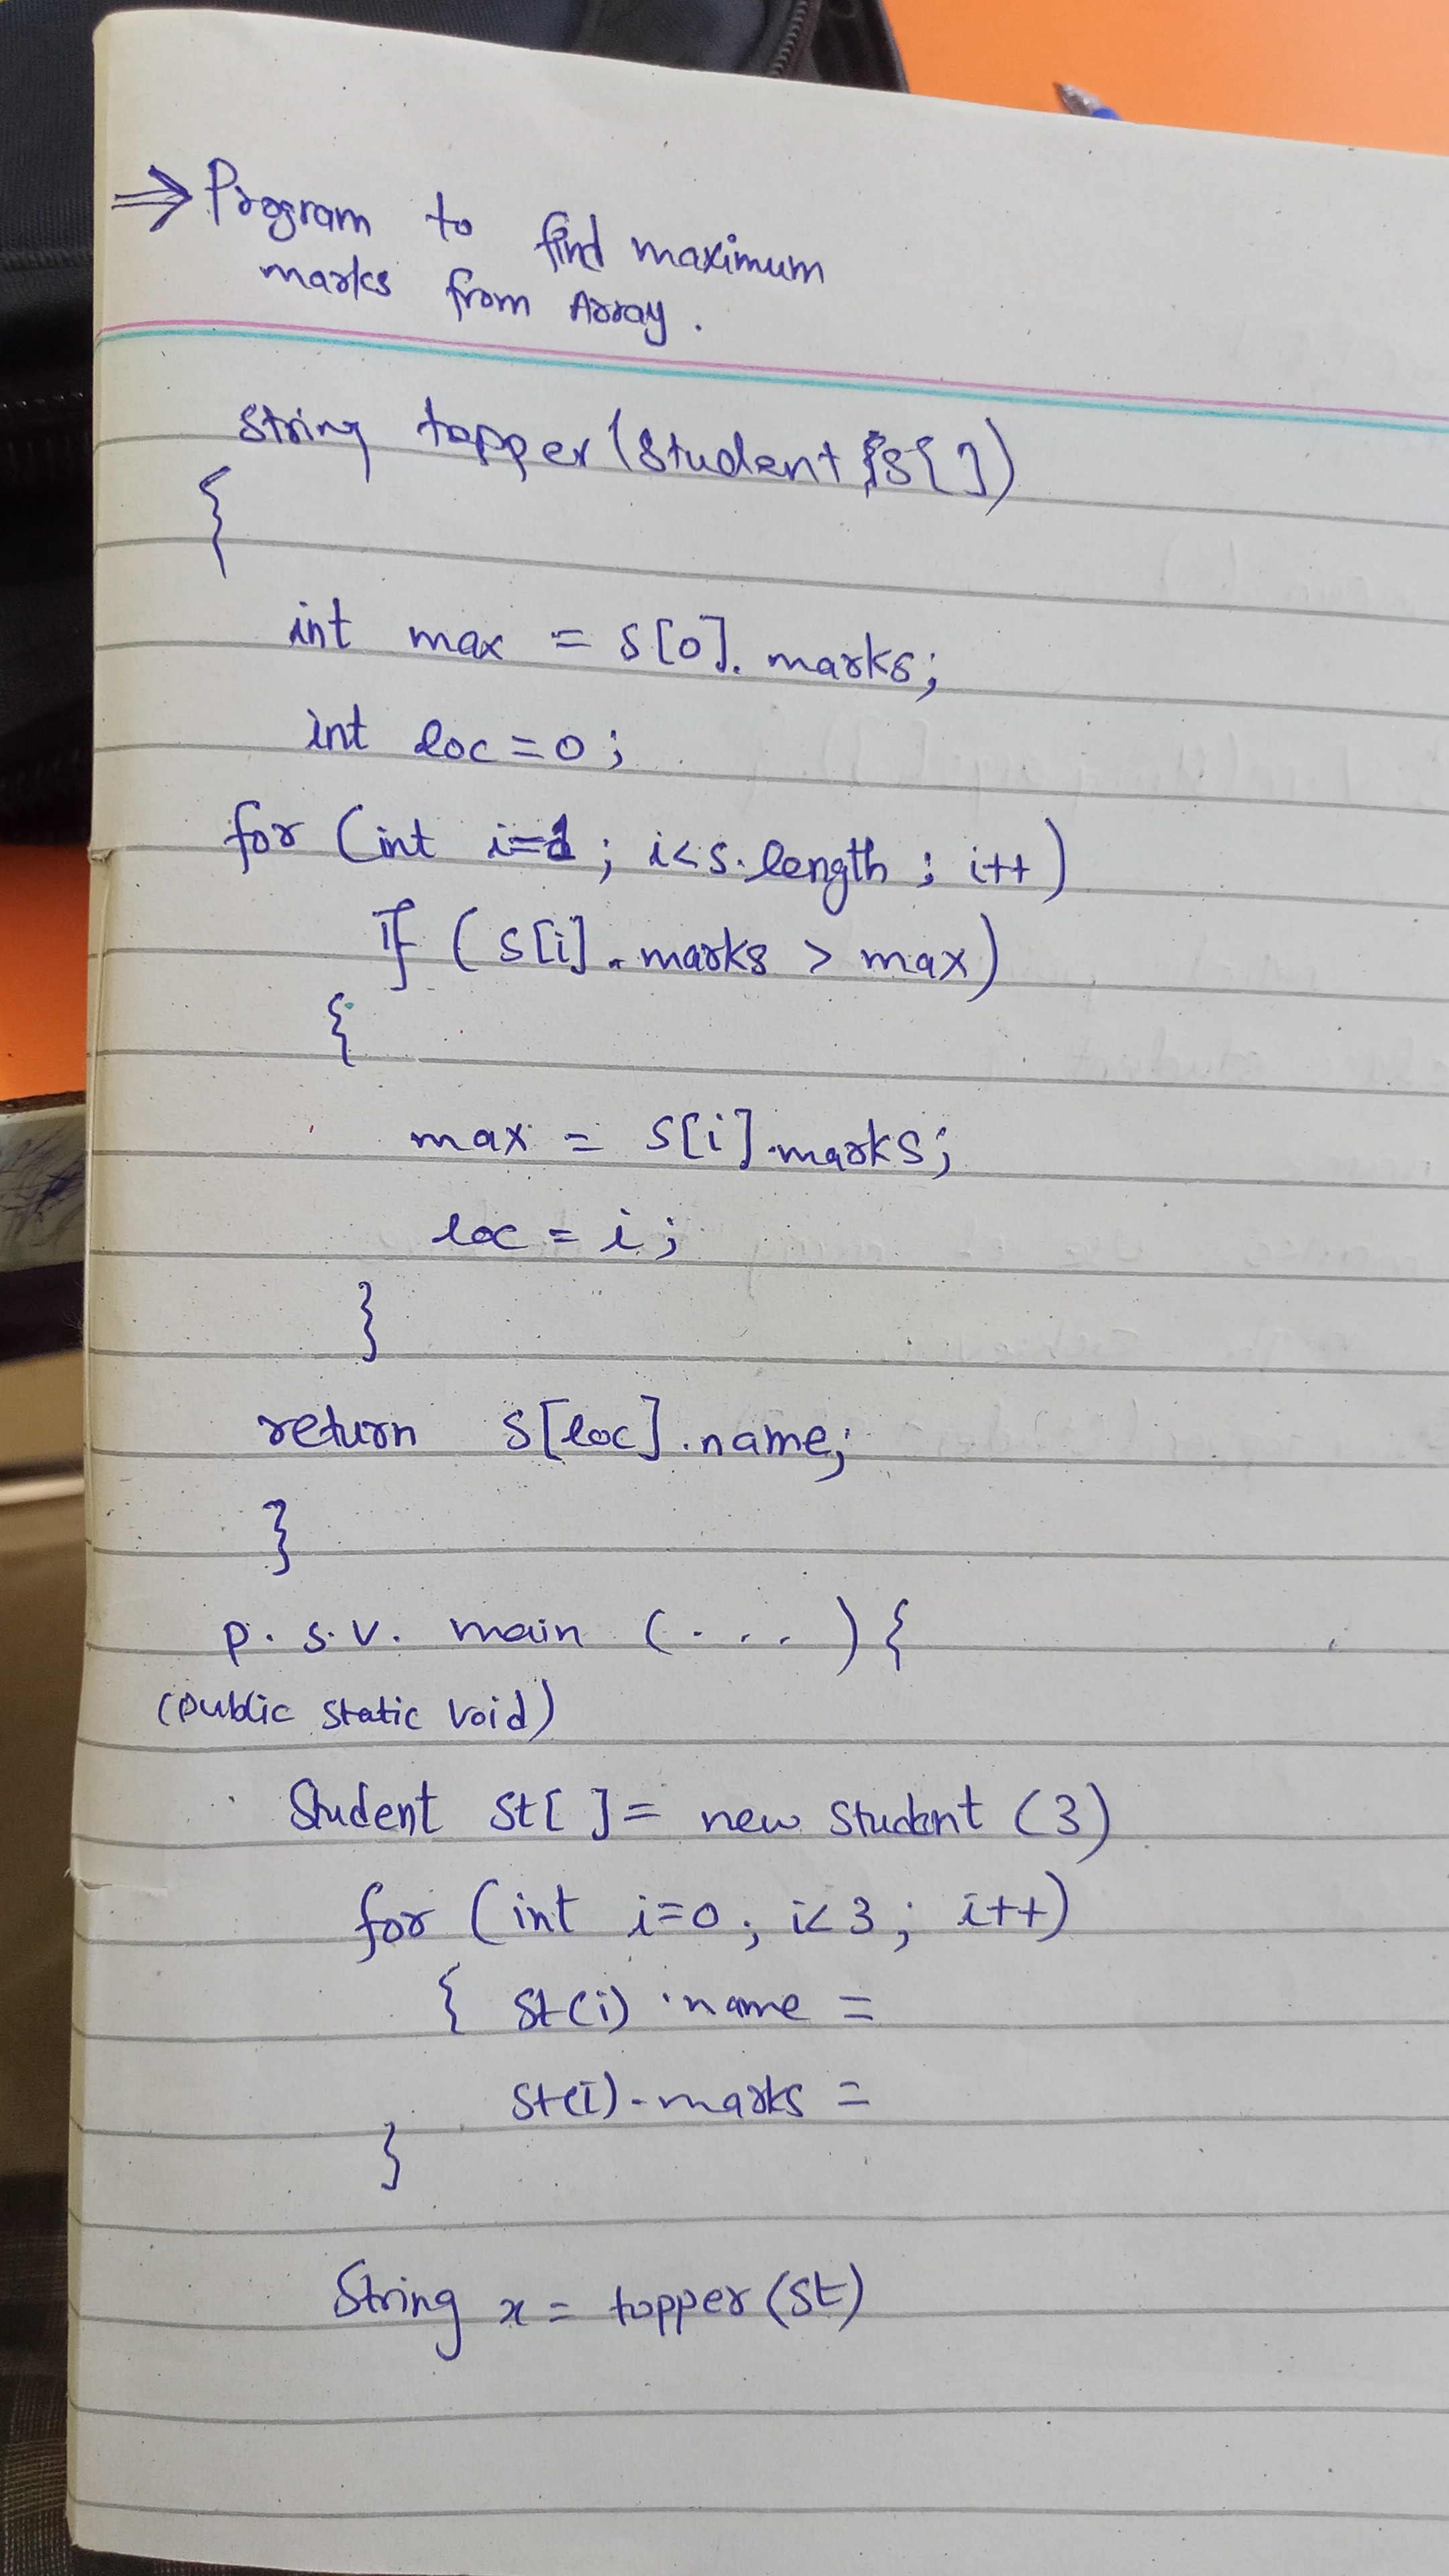 ⇒ Program to find maximum
marks from Array.
String topper (Student s[])
{
int max = s[0].marks;
int loc = 0;
for (int i=1; i<s.length; i++)
If (s[i].marks > max)
{
max = s[i].marks;
loc = i;
}
return s[loc].name;
}
p. s. v. main (. . . ) {
(public static void)
Student st[ ] = new student (3)
for (int i=0; i<3; i++)
{ st(i).name =
st(i).marks =
}
String x = topper (st)